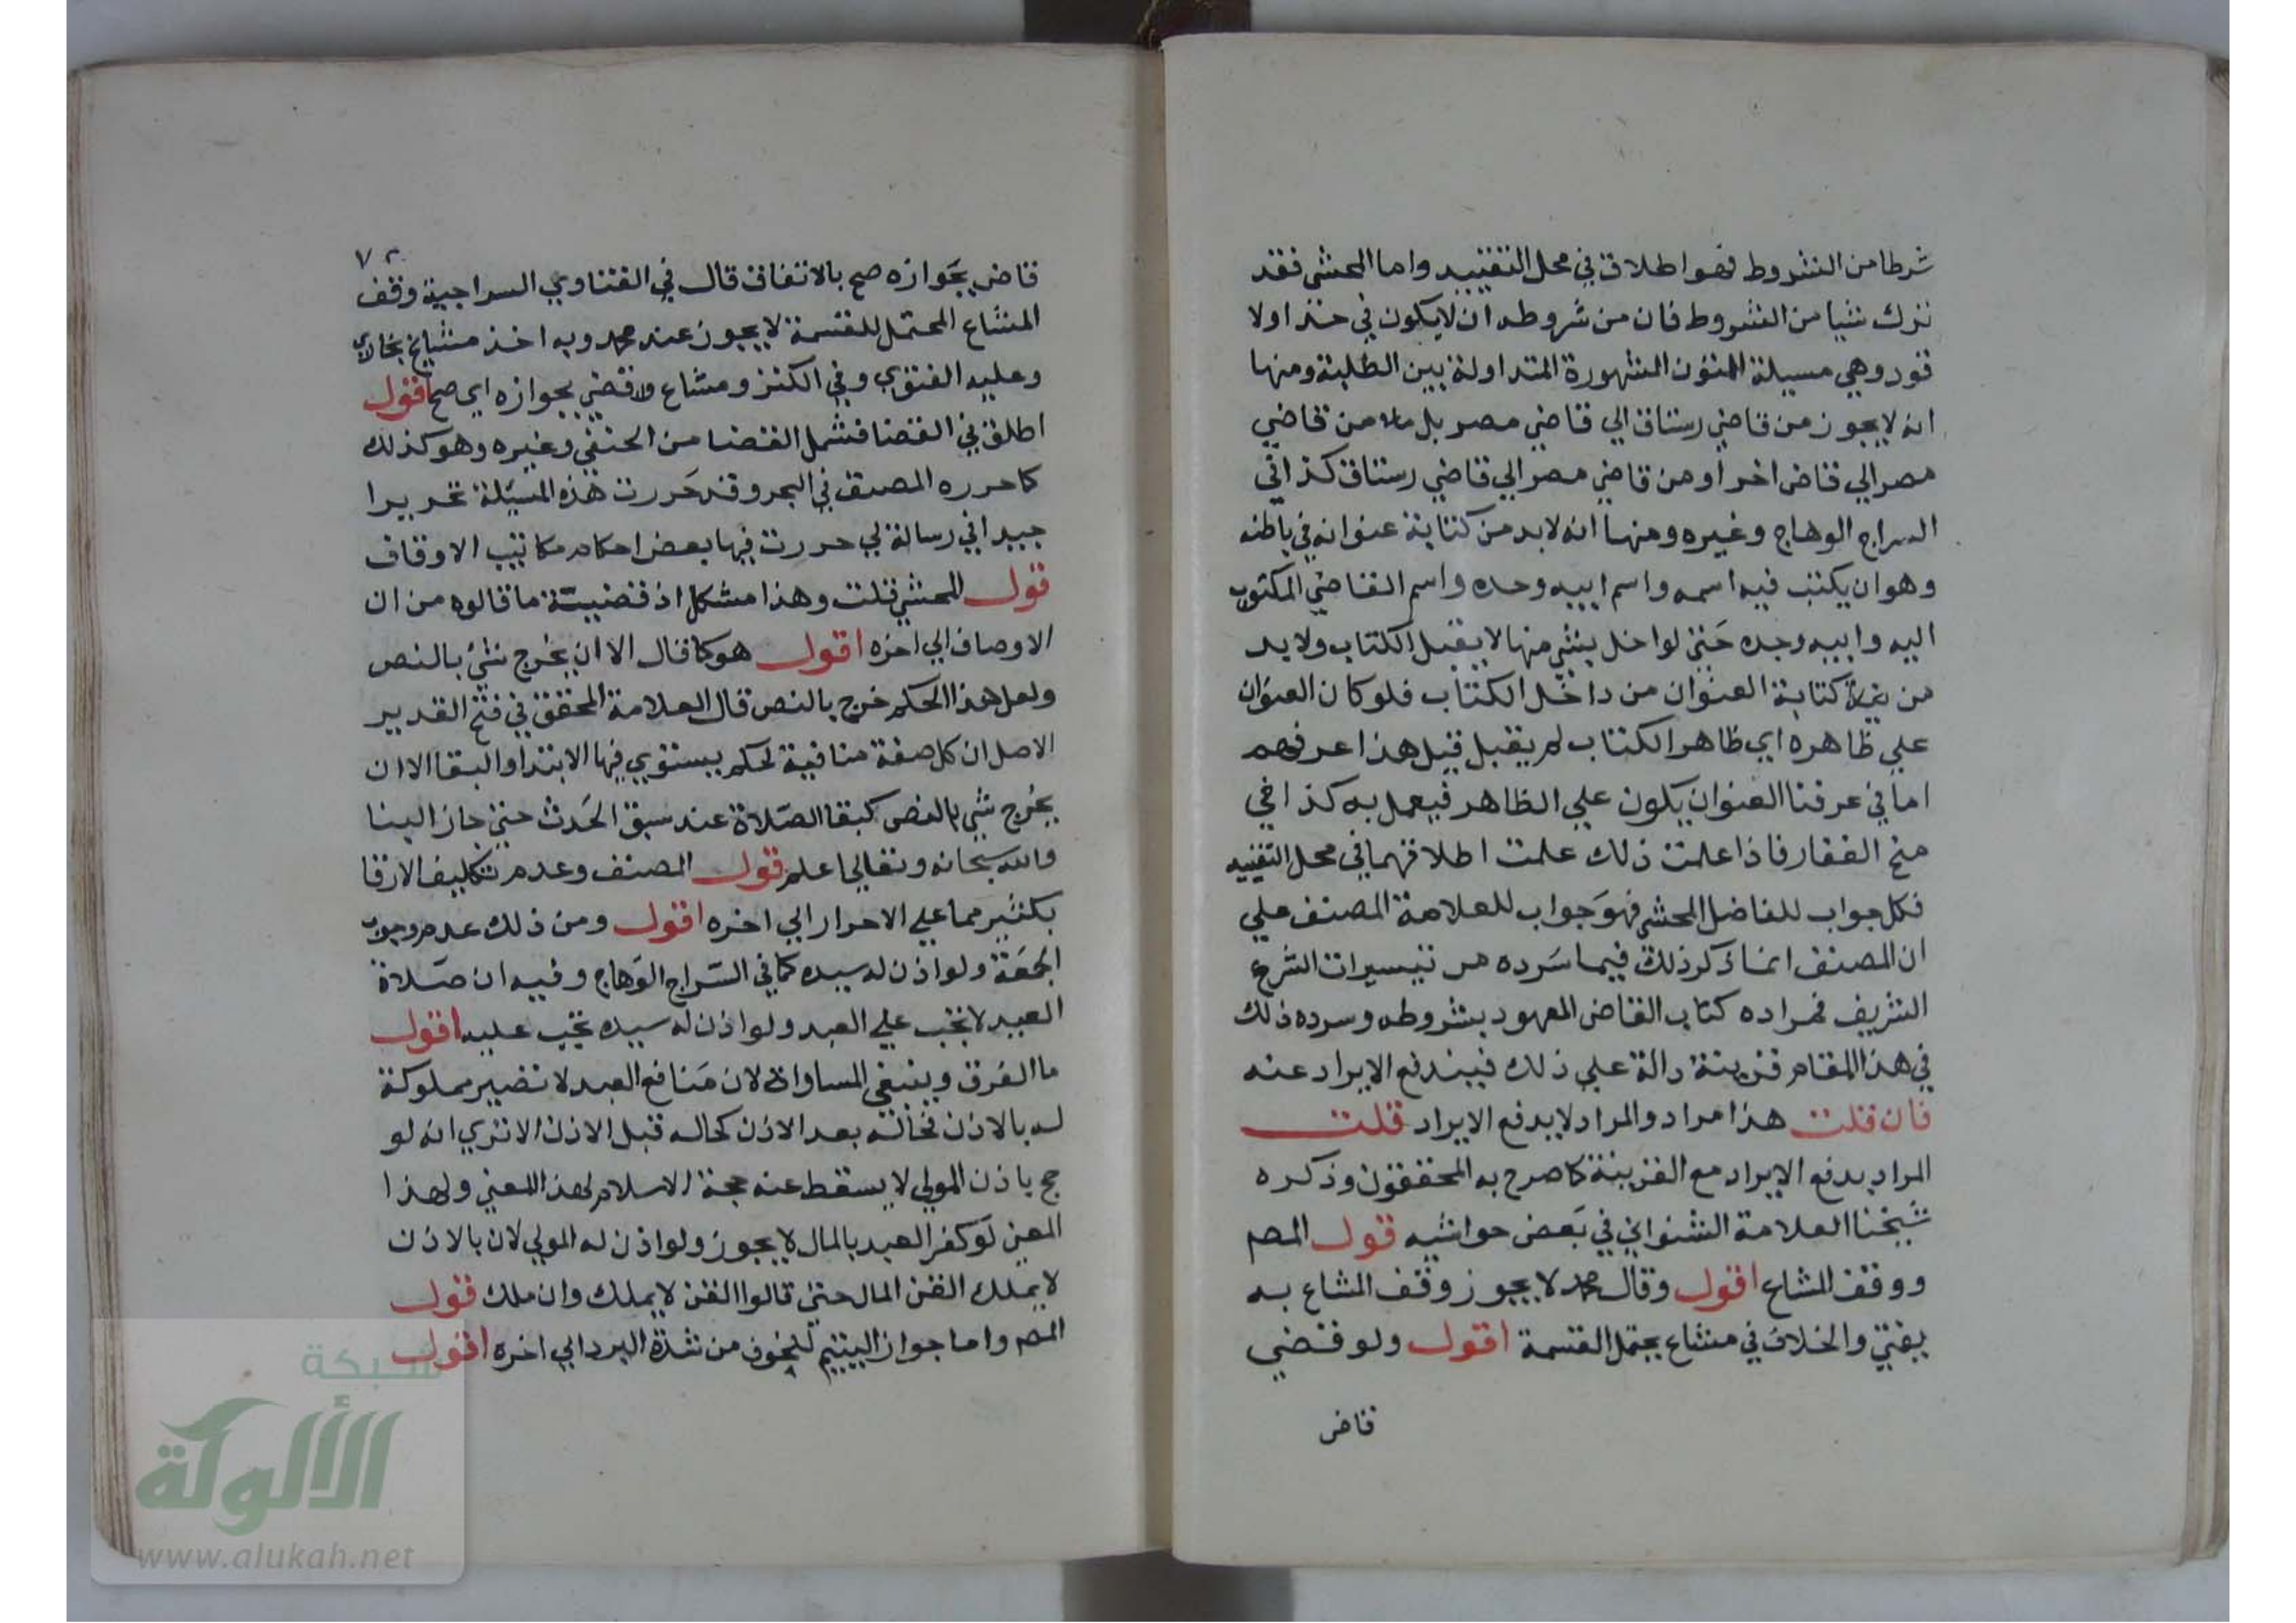 شرطا من الشروط فهو اطلاق في محل التقييد واما المحشي فقد
ترك شيا من الشروط فان من شروطه ان لا يكون في حد اولا
قود وهي مسيلة المتون المشهورة المتداولة بين الطلبة ومنها
انه لا يجوز من قاضي رستاق الي قاضي مصر بل من قاضي
مصر الي قاض اخر او من قاضي مصر الي قاضي رستاق كذا في
السراج الوهاج وغيره ومنها انه لا بد من كتابة عنوانه في باطنه
وهو ان يكتب فيه اسمه واسم ابيه وجده واسم القاضي المكتوب
اليه وابيه وجده حتي لو اخل بشي منها لا يقبل الكتاب ولا بد
من كتابة العنوان من داخل الكتاب فلو كان العنوان
علي ظاهره اي ظاهر الكتاب لم يقبل قيل هذا عرفهم
اما في عرفنا العنوان يكون علي الظاهر فيعمل به كذا في
منح الغفار فاذا علمت ذلك علمت اطلاقهما في محل التقييد
فكل جواب للفاضل المحشي فهو جواب للعلامة المصنف علي
ان المصنف انما ذكر ذلك فيما سرده من تيسيرات الشرع
الشريف فمراده كتاب القاض المعهود بشروطه وسرده ذلك
في هذا المقام قرينة دالة علي ذلك فيندفع الايراد عنه
فان قلت هذا مراد والمراد لا يدفع الايراد قلت
المراد يدفع الايراد مع القرينة كما صرح به المحققون وذكره
شيخنا العلامة الشنواني في بعض حواشيه قول المص
ووقف المشاع اقول وقال محمد لا يجوز وقف المشاع به
يفتي والخلاف في مشاع يحتمل القسمة اقول ولو قضي
قاض
٧٢
قاض بجوازه صح بالاتفاق قال في الفتاوي السراجية وقف
المشاع المحتمل للقسمة لا يجوز عند محمد وبه اخذ مشايخ بخاري
وعليه الفتوي وفي الكنز ومشاع قضي بجوازه اي صح اقول
اطلق في القضا فشمل القضا من الحنفي وغيره وهو كذلك
كما حرره المصنف في البحر وقد حررت هذه المسيلة تحريرا
جيدا في رسالة لي حررت فيها بعض احكام مكاتيب الاوقاف
قول المحشي قلت وهذا مشكل اذ قضيته ما قالوه من ان
الاوصاف الي اخره اقول هو كما قال الا ان يخرج شي بالنص
ولعل هذا الحكم خرج بالنص قال العلامة المحقق في فتح القدير
الاصل ان كل صفة منافية لحكم يستوي فيها الابتدا والبقا الا ان
يخرج شي بالنص كبقا الصلاة عند سبق الحدث حتي جاز البنا
والله سبحانه وتعالي اعلم قول المصنف وعدم تكليف الارقا
بكثير مما علي الاحرار الي اخره اقول ومن ذلك عدم وجوب
الجمعة ولو اذن له سيده كما في السراج الوهاج وفيه ان صلاة
العيد لا تجب علي العبد ولو اذن له سيده تجب عليه اقول
ما الفرق وينبغي المساواة لان منافع العبد لا تصير مملوكة
له بالاذن فحاله بعد الاذن كحاله قبل الاذن الا تري انه لو
حج باذن المولي لا يسقط عنه حجة الاسلام لهذا المعني ولهذا
المعني لو كفر العبد بالمال لا يجوز ولو اذن له المولي لان بالاذن
لا يملك القن المال حتي قالوا القن لا يملك وان ملك قول
المص واما جواز التيمم للخوف من شدة البرد الي اخره اقول
شبكة
الألوكة
www.alukah.net